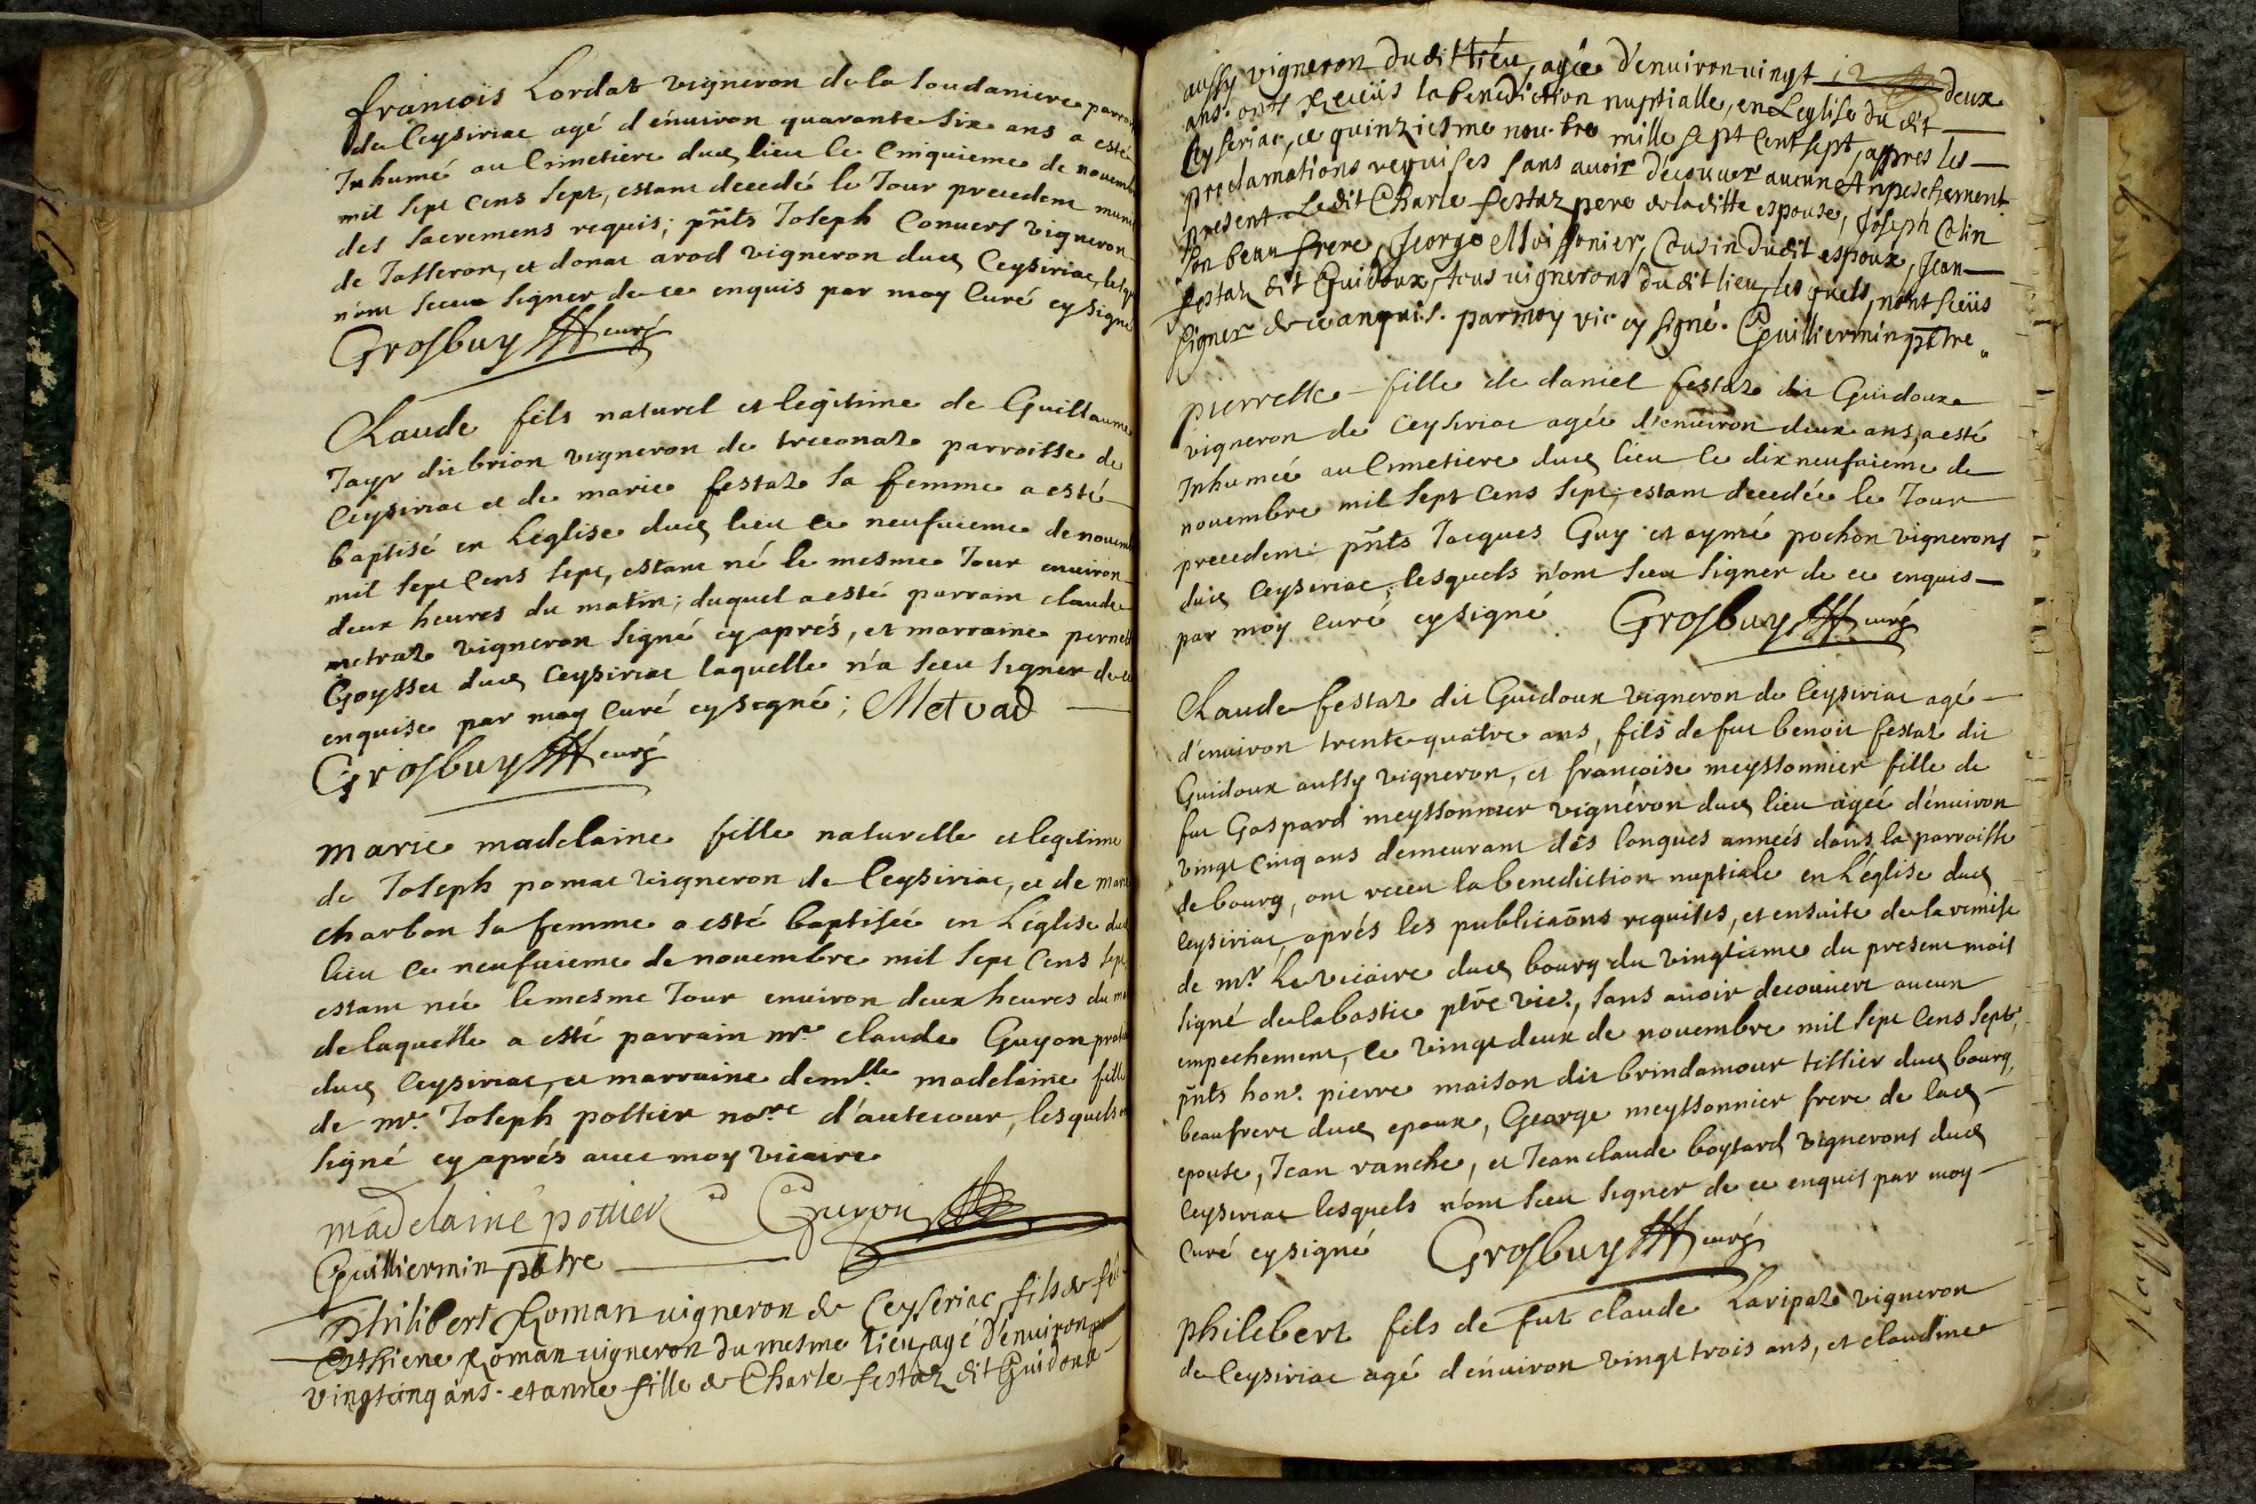 françois Lordat vigneron de la Soudaniere parro
de Ceysiriac agé d'énuiron quarante six ans a esté
Inhumé au Cimetiere dud lieu le Cinquieme de nouem
mil sept cens sept, estant decedé le Jour precedent muni
des sacremens requis; pñts Joseph Conuers vigneron
de Jasseron, et donat arod vigneron dud Ceysiriac, lesq
n'ont sceu signer de ce enquis par moy Curé cy signé
Grosbuy curé
Claude fils naturel et legitime de Guillaume
Jayr dit brion vigneron de treconat parroisse de
Ceysiriac et de marie festaz sa femme a esté
baptisé en L'eglise dud lieu ce neufuieme de nouem
mil sept Cens sept, estant né le mesme Jour enuiron
deux heures du matin; duquel a esté parrain claude
metraz vigneron signé cy aprés, et marraine pernet
Goysset dud Ceysiriac laquelle n'a sceu signer de ce
enquise par moy Curé cy signé; Metrad
Grosbuy curé
marie madelaine fille naturelle et legitime
de Joseph pomat vigneron de Ceysiriac, et de mar
charbon sa femme a esté baptisée en L'eglise dud
lieu ce neufuieme de nouembre mil sept Cens sept
estant née le mesme Jour enuiron deux heures du ma
de laquelle a esté parrain mre claude Guyon prat
dud Ceysiriac, et marraine demlle madelaine fille
de mr. Joseph pottier nore d'autecour, lesquels
signé cy aprés auec moy vicaire
madelaine pottier
Guilliermin pbtre
philibert Roman uigneron de Ceyseriac, fils de feu
Esthiene Roman uigneron du mesme lieu, agé d'enuiron
vingtcinq ans. et anne fille de Charle festaz dit Guidoux
aussy vigneron dudit lieu, agée d'enuiron uingt deux
ans. onts Receüs la benediction nuptialle, en Leglise du dit
Ceyseriac, ce quinziesme nou.bre mille sept cent sept, appres les
proclamations requises sans auoir decouuer aucun Anpeschement
present Ledit Charle festaz pere de laditte espouse, Joseph Colin
son beau frere, George Moissonier, Cousin dudit espoux, Jean
festaz dit Guidoux, tous uignerons du dit lieu, les quels, n'ont sceüs
signer de ce anquis. par moy vic cy signé. Guilliermin pbtre
pierrette fille de daniel festaz dit Guidoux
vigneron de Ceysiriac agée d'enuiron deux ans, a esté
Inhumée au Cimetiere dud lieu le dix neufuieme de
nouembre mil sept Cens sept, estant decedée le Jour
precedent pñts Jacques Guy et aymé pochon vignerons
dud Ceysiriac, lesquels n'ont sceu signer de ce enquis
par moy Curé cy signé Grosbuy curé
Claude festaz dit Guidoux vigneron de Ceysiriac agé
d'enuiron trente quatre ans, fils de fut benoit festaz dit
Guidoux aussy vigneron, et françoise meyssonnier fille de
fut Gaspard meyssonnier vigneron dud lieu agée d'énuiron
vingt Cinq ans demeurant dés longues années dans la parroisse
de bourg, ont receu la benediction nuptiale en L'église dud
Ceysiriac, aprés les publicaõns requises, et ensuite de la remise
de mr. Le vicaire dud bourg du vingtieme du present mois
signé delabastie ptre vicr., sans auoir decouuert aucun
empechement, ce vingt deux de nouembre mil sept Cens sept,
pñts honr. pierre maison dit brindamour tissier dud bourg,
beaufrere dud epoux, George meyssonnier frere de lad
epouse, Jean ranche, et Jean claude boysard vignerons dud
Ceysiriac lesquels n'ont sceu signer de ce enquis par moy
Curé cy signé Grosbuy curé
philebert fils de fut claude Laripaz vigneron
de Ceysiriac agé d'énuiron vingt trois ans, et claudine